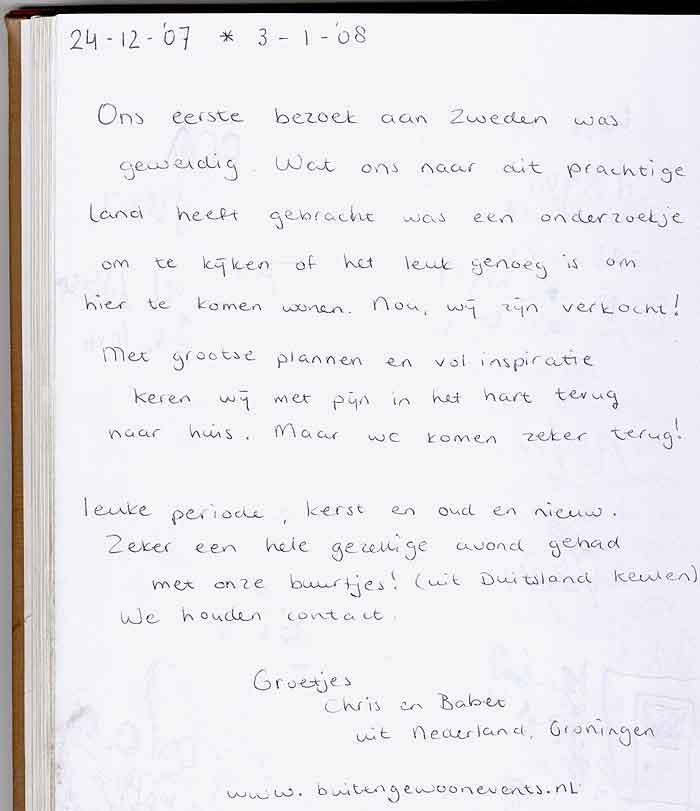 24-12-'07 * 3-1-'08
Ons eerste bezoek aan Zweden was
geweldig. Wat ons naar dit prachtige
land heeft gebracht was een onderzoekje
om te kijken of het leuk genoeg is om
hier te komen wonen. Nou, wij zijn verkocht!
Met grootse plannen en vol inspiratie
keren wij met pijn in het hart terug
naar huis. Maar we komen zeker terug!
Leuke periode, kerst en oud en nieuw.
Zeker een hele gezellige avond gehad
met onze buurtjes! (uit Duitsland Keulen)
We houden contact.
Groetjes
Chris en Babet
uit Nederland, Groningen
www.buitengewoonevents.nl